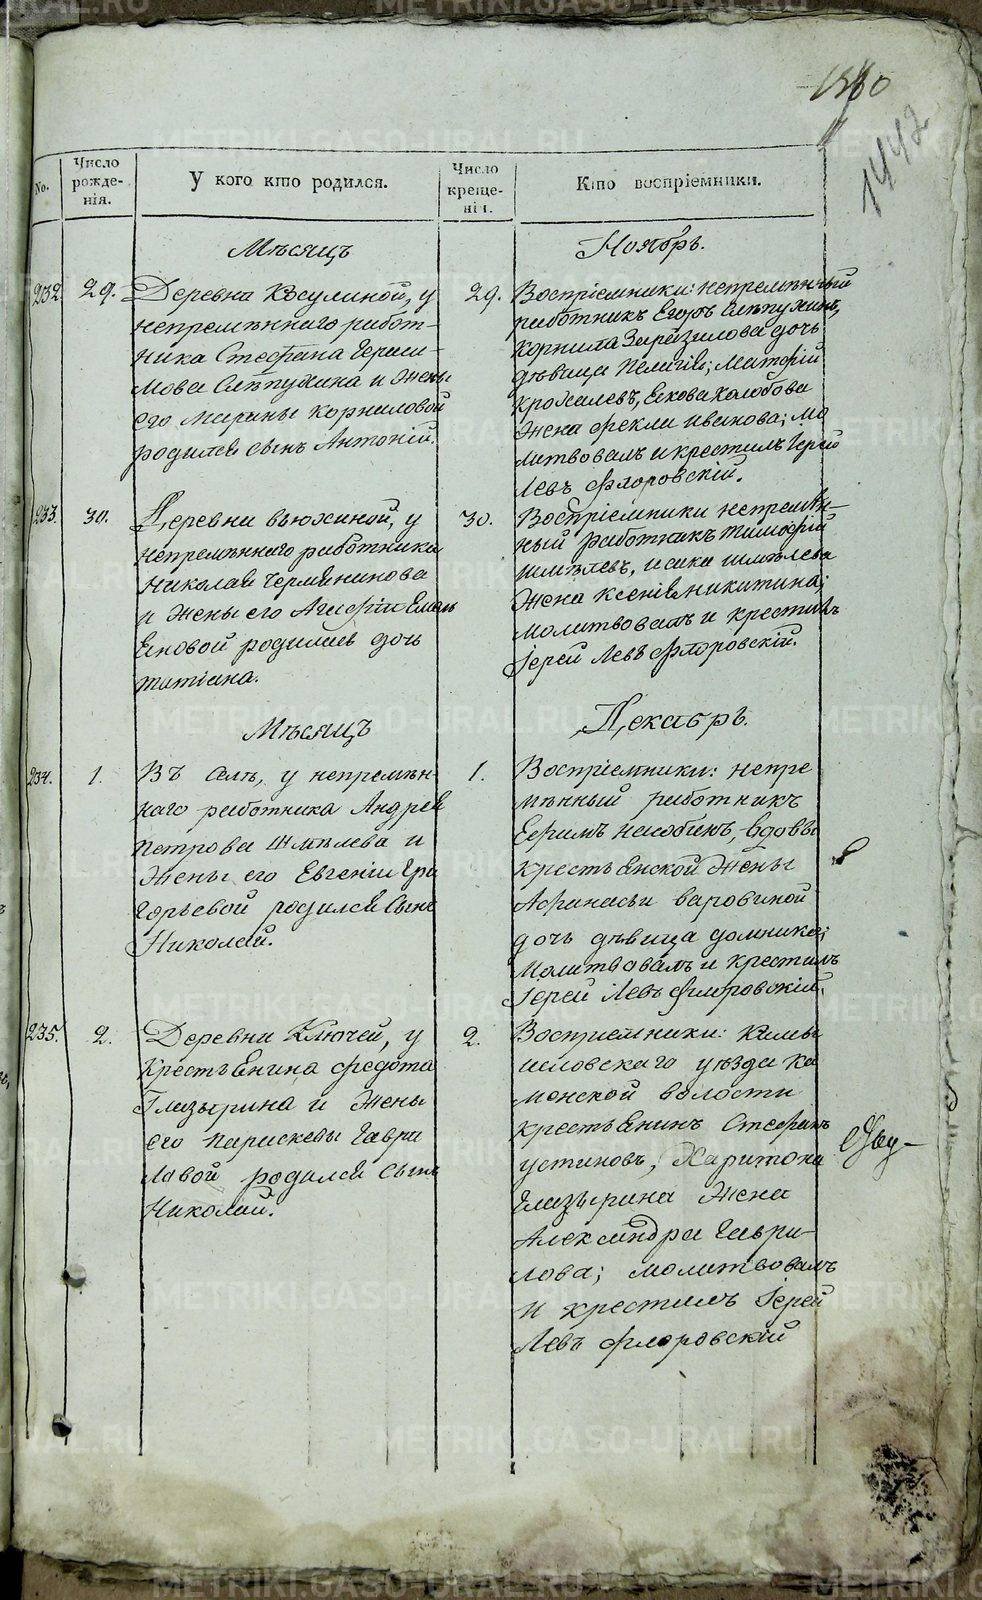 1442
No.
Число рожде-
нія.
У кого кто родился.
Число креще-
нія.
Кто воспріемники.
Мѣсяцъ
Ноябрь.
232.
29.
Деревна Косулиной, у
непремѣннаго работ-
ника Стефана Гераси-
мова Слѣпухина и жены
его Марины Корниловой
родился сынъ Антоній.
29.
Воспріемники: непремѣнный
работникъ Егоръ Слѣпухинъ,
Корнила дочь
дѣвица Пелагія; Матфій
жена Фекла Иванова; мо
литвовалъ и крестилъ Іерей
Левъ Флоровскій.
233.
30.
Деревни Вьюхиной, у
непремѣннаго работника
Николая Черемнинова
и жены его Агафіи Емель
еновой родилась дочь
Татіана.
30.
Воспріемники непремѣн-
ный работникъ Тимофій
Шмѣлевъ, Исака Шмѣлева
жена Ксенія Никитина;
молитвовалъ и крестилъ
Іерей Левъ Флоровскій.
Мѣсяцъ
Декабрь.
234.
1.
Въ селѣ, у непремѣн-
наго работника Андрея
Петрова Шмѣлева и
жены его Евгеніи Гри
горьевой родился сынъ
Николай.
1.
Воспріемники: непре
мѣнный работникъ
Ефимъ вдовы
крестьенской жены
Афанасьи
дочь дѣвица Домника;
молитвовалъ и крестилъ
Іерей Левъ Флоровскій.
235.
2.
Деревни Ключей, у
крестьенина Федота
Глазырина и жены
его Парискевы Гаври
ловой родился сынъ
Николай.
2.
Воспріемники: Камы
шловскаго уѣзда Ка
менской волости
крестьенинъ Стефанъ
Устиновъ, Харитона
Глазырина жена
Александра Гаври-
лова; молитвовалъ
и крестилъ Іерей
Левъ Флоровскій
METRIKI.GASO-URAL.RU